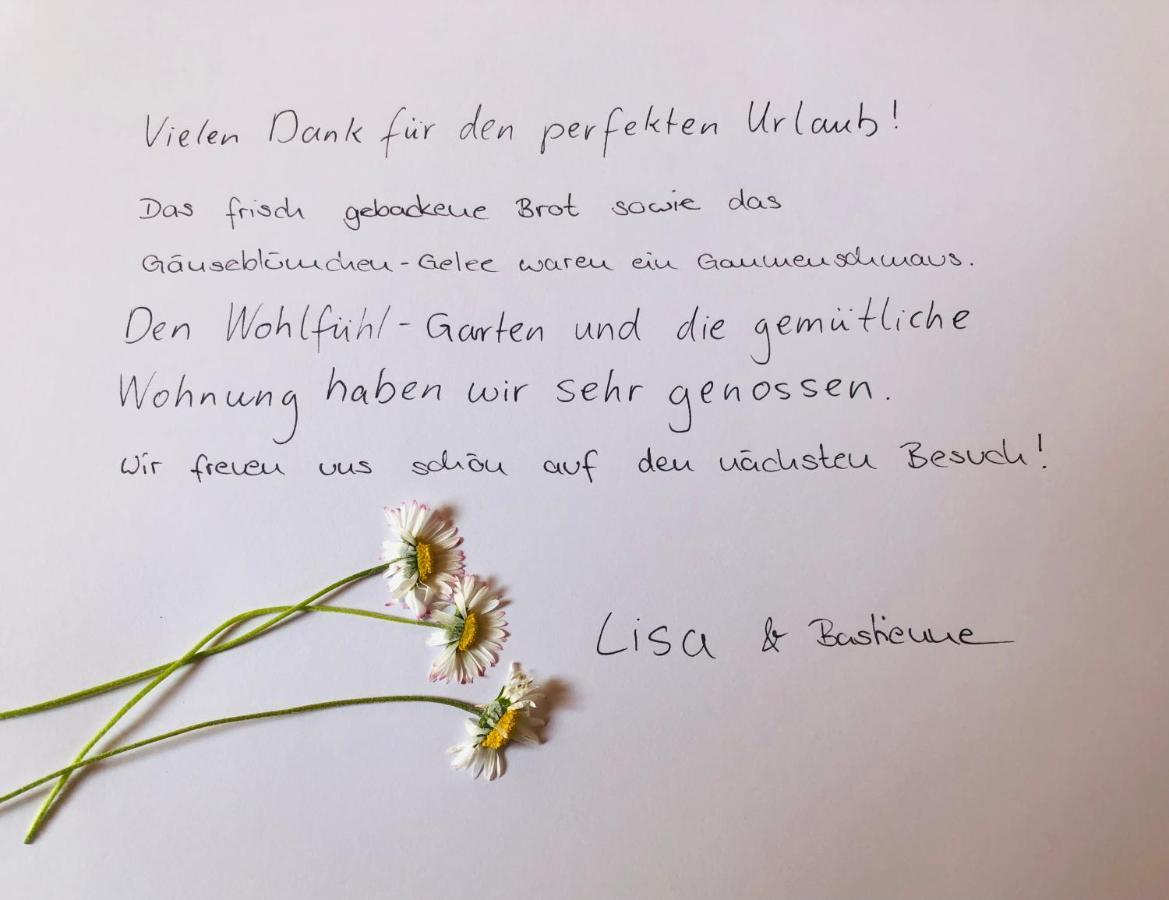 Vielen Dank für den perfekten Urlaub!
Das frisch gebackene Brot sowie das
Gänseblümchen-Gelee waren ein Gaumenschmaus.
Den Wohlfühl-Garten und die gemütliche
Wohnung haben wir sehr genossen.
Wir freuen uns schon auf den nächsten Besuch!
Lisa & Bastienne